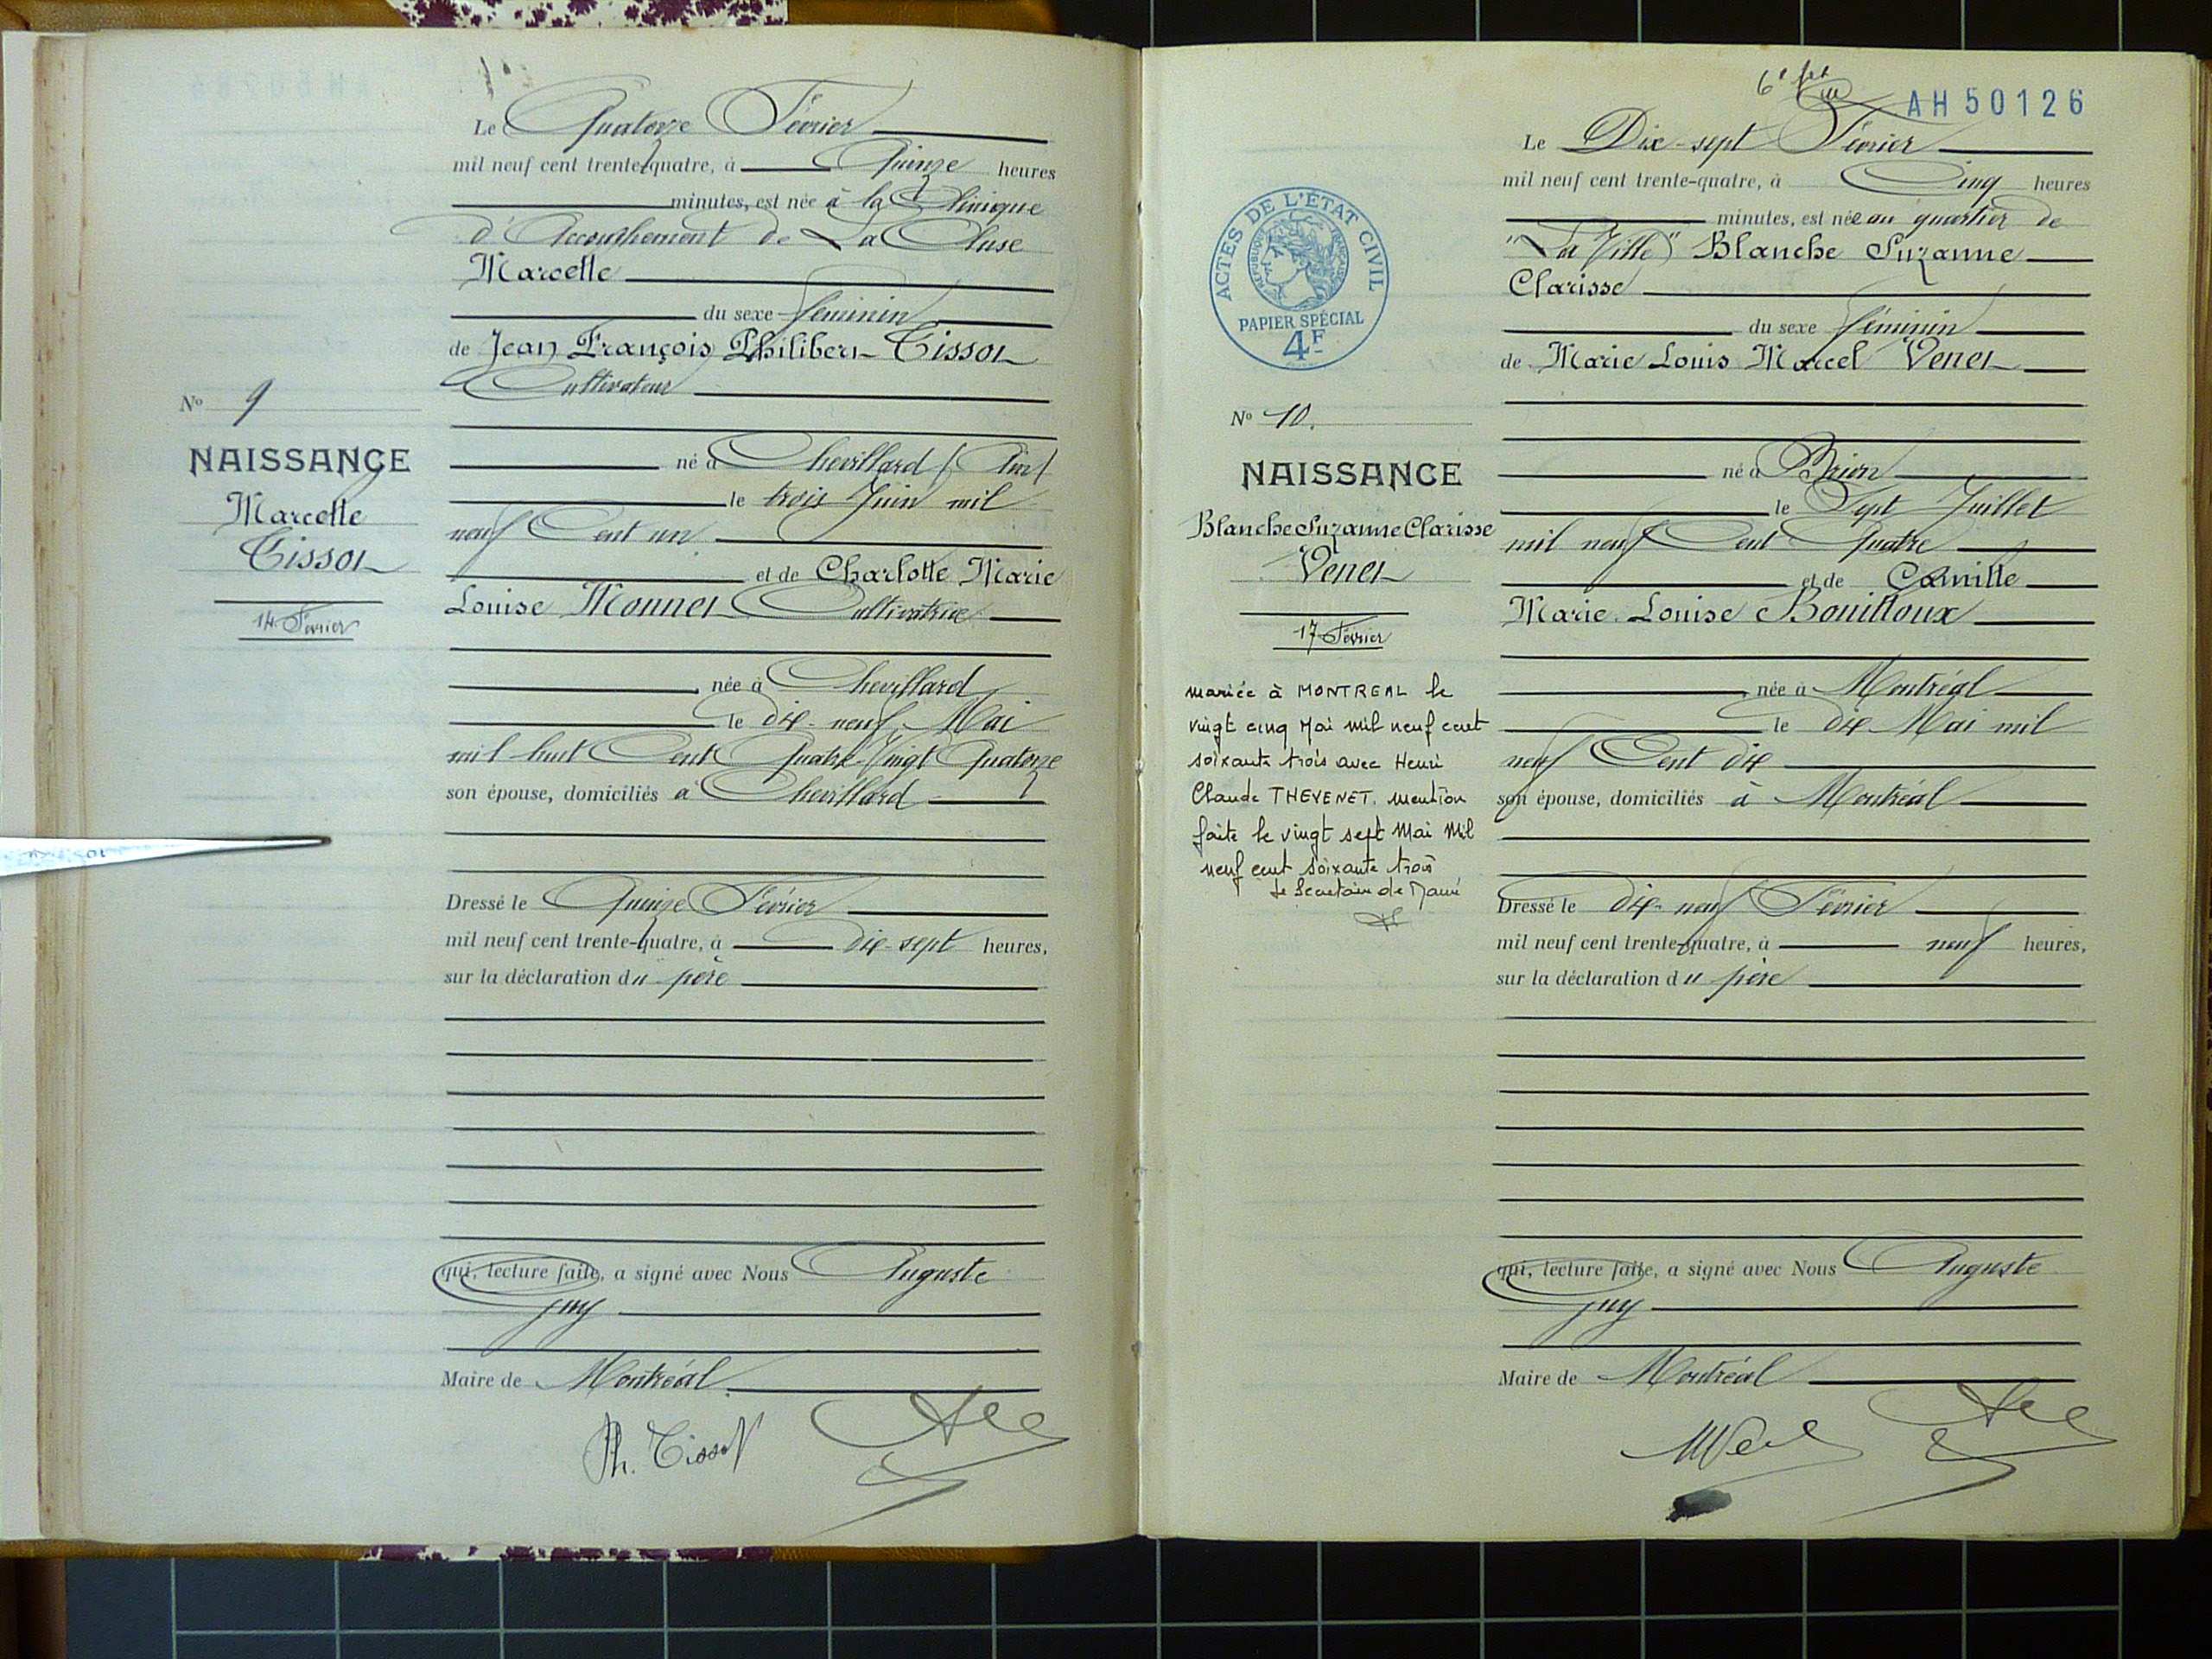 Le Quatorze Février
mil neuf cent trente-quatre, à Quinze heures
minutes, est née à la Clinique
d'Accouchement de La Cluse
Marcelle
du sexe féminin
de Jean François Philibert Tissot
Cultivateur
né à Chevillard (Ain)
le trois Juin mil
neuf Cent un
et de Charlotte Marie
Louise Monnet Cultivatrice
née à Chevillard
le dix-neuf Mai
mil huit Cent Quatre-Vingt Quatorze
son épouse, domiciliés à Chevillard
Dressé le Quinze Février
mil neuf cent trente-quatre, à dix-sept heures,
sur la déclaration du père
qui, lecture faite, a signé avec Nous Auguste
Guy
Maire de Montréal
Ph. Tissot
No 9
NAISSANCE
Marcelle
Tissot
14 Février
AH 50126
Le Dix-sept Février
mil neuf cent trente-quatre, à Cinq heures
minutes, est née au quartier de
"La Ville" Blanche Suzanne
Clarisse
du sexe féminin
de Marie Louis Marcel Venet
né à Brion
le Sept Juillet
mil neuf Cent Quatre
et de Camille
Marie Louise Bouilloux
née à Montréal
le dix Mai mil
neuf Cent dix
son épouse, domiciliés à Montréal
Dressé le dix-neuf Février
mil neuf cent trente-quatre, à neuf heures,
sur la déclaration du père
qui, lecture faite, a signé avec Nous Auguste
Guy
Maire de Montréal
ACTES DE L'ÉTAT CIVIL
RÉPUBLIQUE FRANÇAISE
PAPIER SPÉCIAL
4F
No 10.
NAISSANCE
Blanche Suzanne Clarisse
Venet
17 Février
mariée à MONTREAL le
vingt cinq Mai mil neuf cent
soixante trois avec Henri
Claude THEVENET. mention
faite le vingt sept Mai Mil
neuf cent soixante trois
Le Secrétaire de Mairie